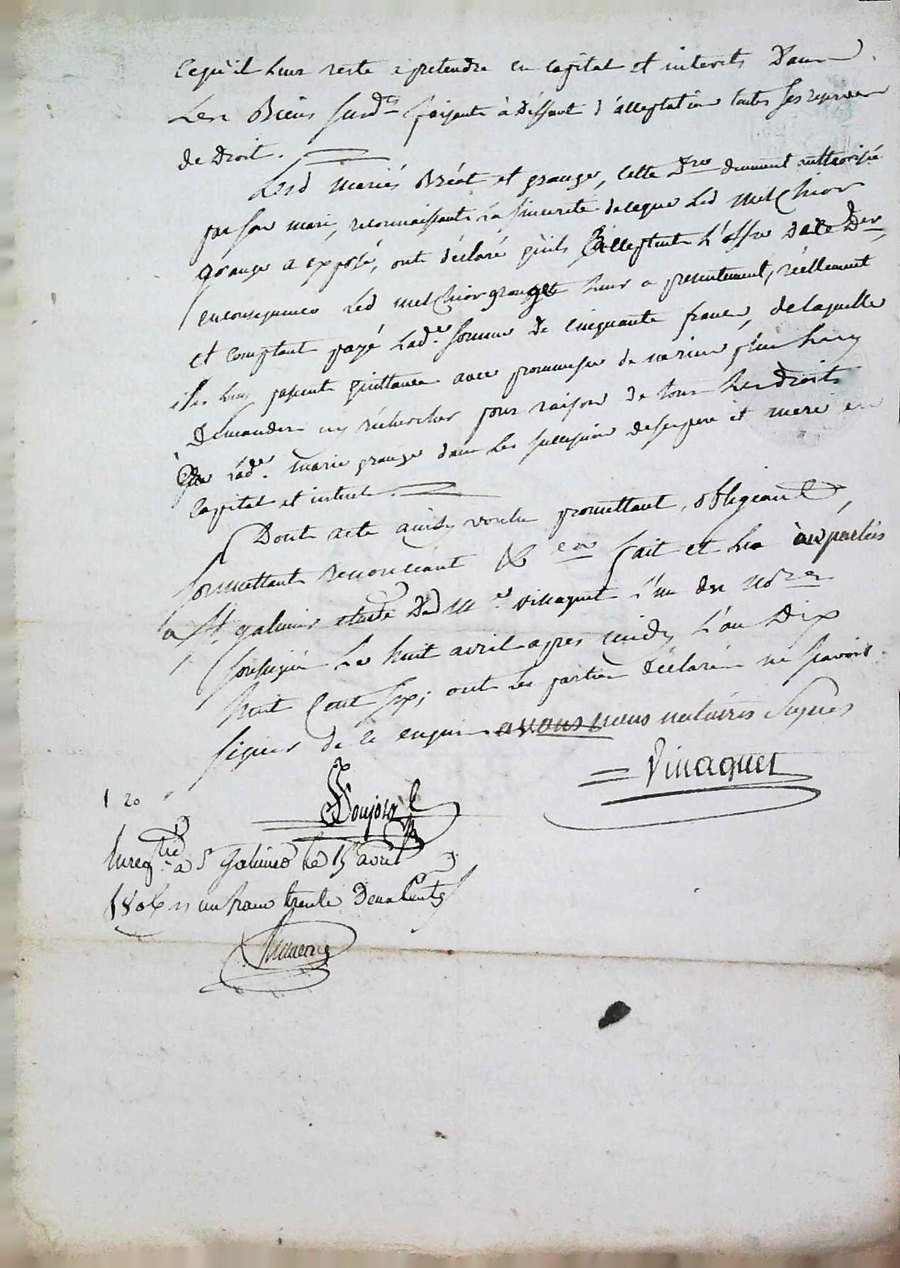 ce qu'il leur reste a pretendre en capital et interets dans
Les Biens susd.ts faisants à deffaut d'acceptation toutes ses reserves
de Droit.
Lesd mariés Bréat et grange, cette D.re dument authorisée
par son mari, reconnaissants la sincerité de ceque Led melchior
grange a exposé, ont déclaré qu'ils acceptent L'offre de ce Der,
enconsequence Led melchior grange leur a presentement, réellement
et comptant payé Lad.e somme de cinquante francs, de laquelle
ils luy passent quittance avec promesse de ne rien plus luy
demander ny rechercher pour raison de tous Les droits
de lad.e marie grange dans Les succession de ses pere et mere en
capital et interets.
Dont acte ainsy voulu promettant, obligeant,
soumettant renonceant &c.a fait et lu aux parties
a St galmier etude Dud M.e vinaguet L'un des No.res
soussignés Le huit avril apres midy L'an Dix
huit Cent Six; ont Les parties déclaré ne scavoir
signer de ce enquis avons nous notaires signés
Vinaguet
1 20
Enreg.tré a St Galmier le 15 avril
1806 un franc trente deux centes